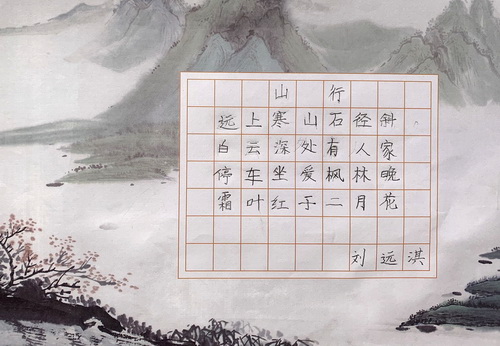 山行
远上寒山石径斜
白云深处有人家
停车坐爱枫林晚
霜叶红于二月花
刘远淇